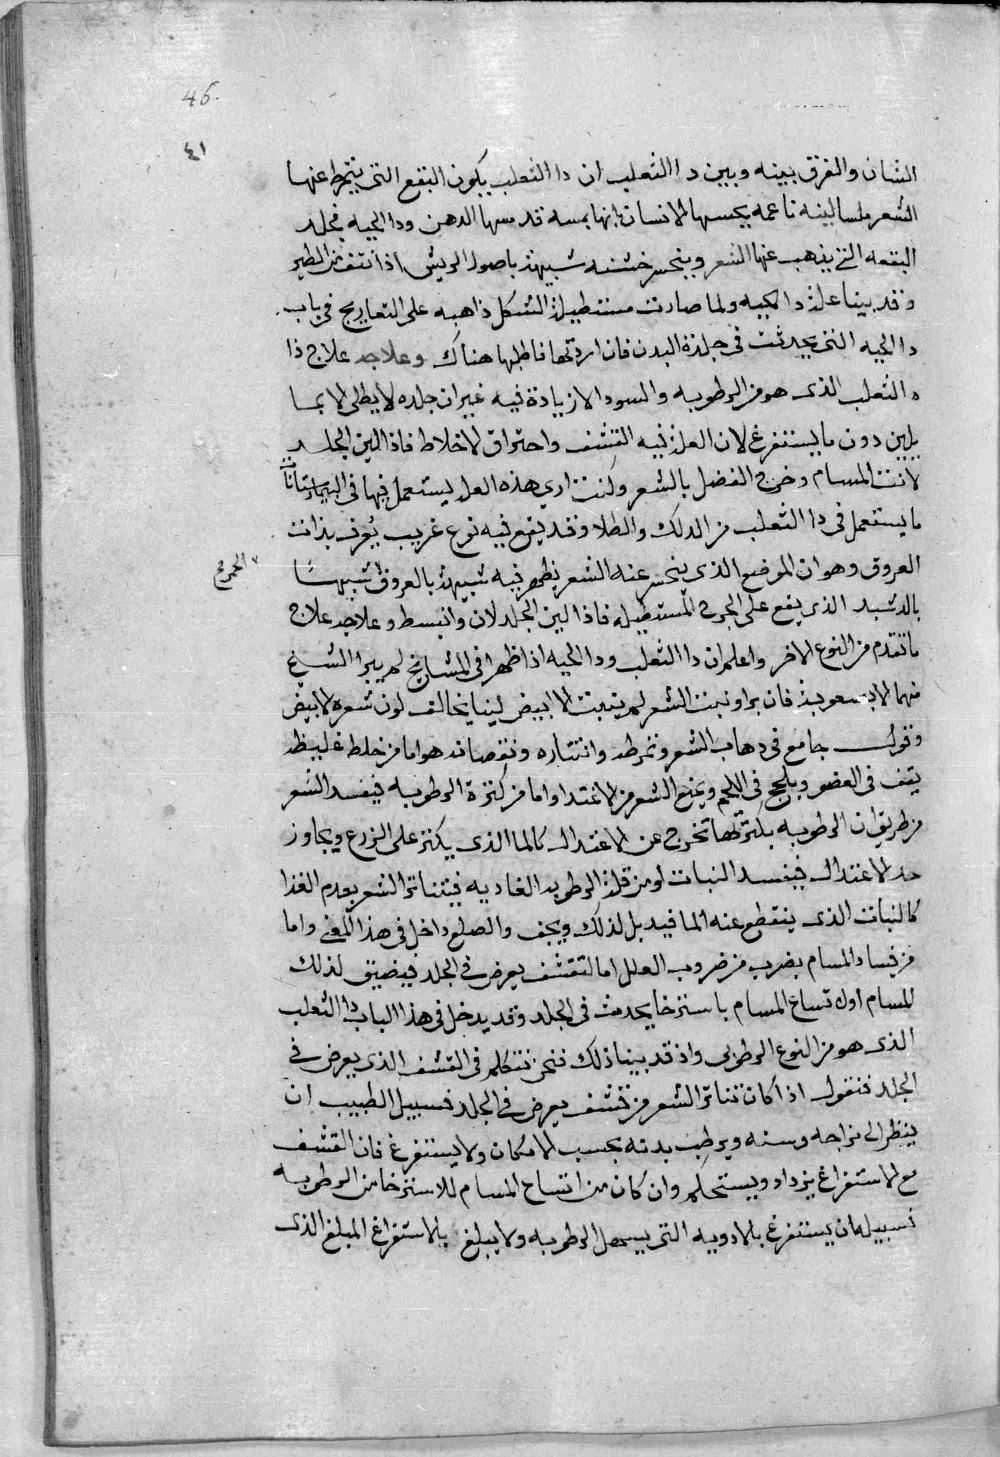 46.
٤١
الشان والفرق بينه وبين دا الثعلب ان دا الثعلب يكون البقع التى يتمرط عنها
الشعر ملسا لينه ناعمه يحسها الانسان انها بمسه قد مسها الدهن ودا الحيه فجلد
البقعه التى يذهب عنها الشعر وينحسر خشنه شبيهة باصول الريش اذا نتف من الطير
وقد بينا علة دا الحيه ولما صارت مستطيلة الشكل ذاهبه على التعاريج فى باب
دا الحيه التى يحدث فى جلدة البدن فان اردتها فاطلبها هناك وعلاجه علاج دا
ه الثعلب الذى هو من الرطوبه والسودا لا زيادة فيه غير ان جلده لا يطلى الا بما
يلين دون ما يستفرغ لان العلة فيه التقشف واحتراق الاخلاط فاذا لين الجلد
لانت المسام وخرج الفضل بالشعر وكنت ارى هذه العلل يستعمل فيها فى البيمارستانات
ما يستعمل فى دا الثعلب من الدلك والطلا وقد يقع فيه نوع غريب يعرف بذات
العروق وهو ان الموضع الذى ينحسر عنه الشعر يظهر فيه شبيهة بالعروق شبيها
الجروح
بالدشبد الذى يقع على الجرح المستطيله فاذا لين الجلد لان وانبسط وعلاجه علاج
ما تقدم من النوع الاخر واعلم ان دا الثعلب ودا الحيه اذا ظهرا فى المشايخ لم يبرا الشيخ
منهما الا بصعوبة فان برا ونبت الشعر لم ينبت الا ابيض لينا يخالف لون شعره الابيض
وقول جامع فى دهاب الشعر وتمرطه وانتثاره ونقصانه هو اما من خلط غليظ
يقف فى العضو ويلحج فى اللحم ويمنع الشعر من الاغتدا واما من كثرة الرطوبه فيفسد الشعر
من طريق ان الرطوبه بكثرتها تخرج عن الاعتدال كالما الذى يكثر على الزرع ويجاوز
حد الاعتدال فيفسد النبات او من قلة الرطوبه الغاديه فيتناثر الشعر بعدم الغذا
كالنبات الذى ينقطع عنه الما فيدبل لذلك ويجف والصلع داخل فى هذا المعنى واما
من فساد المسام بضرب من ضروب العلل اما لتقشف يعرض فى الجلد فيضيق لذلك
المسام او لاتساع المسام باسترخا يحدث فى الجلد وقد يدخل فى هذا الباب دا الثعلب
الذى هو من النوع الرطوبى واذ قد بينا ذلك فنحن نتكلم فى القشف الذى يعرض فى
الجلد فنقول اذا كان تناثر الشعر من تقشف يعرض فى الجلد فسبيل الطبيب ان
ينظر الى مزاجه وسنه ويرطب بدنه بحسب الامكان ولا يستفرغ فان القشف
مع الاستفراغ يزداد ويستحكم وان كان من اتساع المسام للاسترخا من الرطوبه
فسبيله ان يستفرغ بالادويه التى يسهل الرطوبه ولا يبلغ بالاستفراغ المبلغ الذى